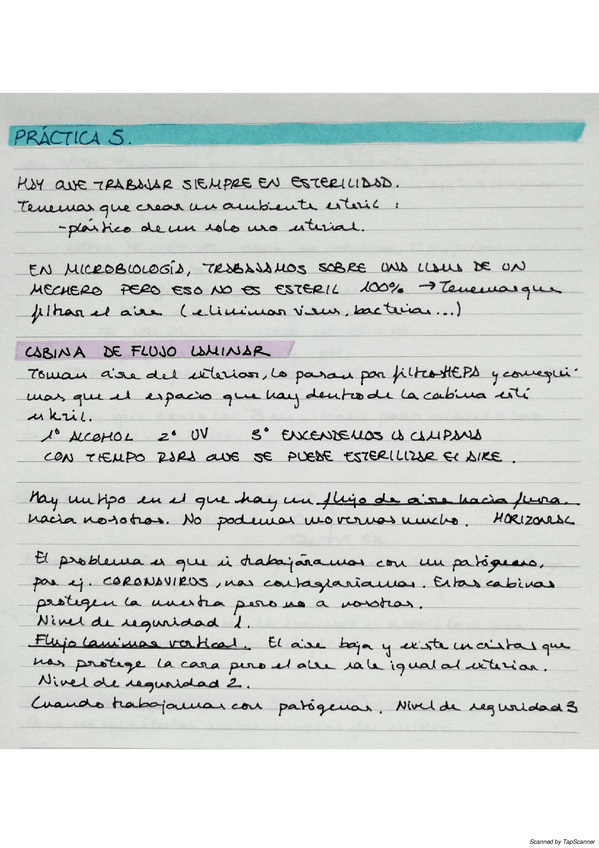 PRÁCTICA 5.
HAY QUE TRABAJAR SIEMPRE EN ESTERILIDAD.
Tenemos que crear un ambiente estéril :
-plástico de un solo uso esterial.
EN MICROBIOLOGÍA, TRABAJAMOS SOBRE UNA LLAMA DE UN
MECHERO PERO ESO NO ES ESTERIL 100% → Tenemos que
filtrar el aire (eliminar virus, bacterias...)
CABINA DE FLUJO LAMINAR
Toman aire del exterior, lo pasan por filtros HEPA y consegui-
mos que el espacio que hay dentro de la cabina esté
estéril.
1º ALCOHOL 2º UV 3º ENCENDEMOS LA CAMPANA
CON TIEMPO PARA QUE SE PUEDE ESTERILIZAR EL AIRE.
Hay un tipo en el que hay un flujo de aire hacia fuera,
hacia nosotros. No podemos movernos mucho. HORIZONTAL
El problema es que si trabajáramos con un patógeno,
por ej. CORONAVIRUS, nos contagiaríamos. Estas cabinas
protegen la muestra pero no a nosotros.
Nivel de seguridad 1.
Flujo laminar vertical. El aire baja y existe un cristal que
nos protege la cara pero el aire sale igual al exterior.
Nivel de seguridad 2.
Cuando trabajamos con patógenos. Nivel de seguridad 3
Scanned by TapScanner